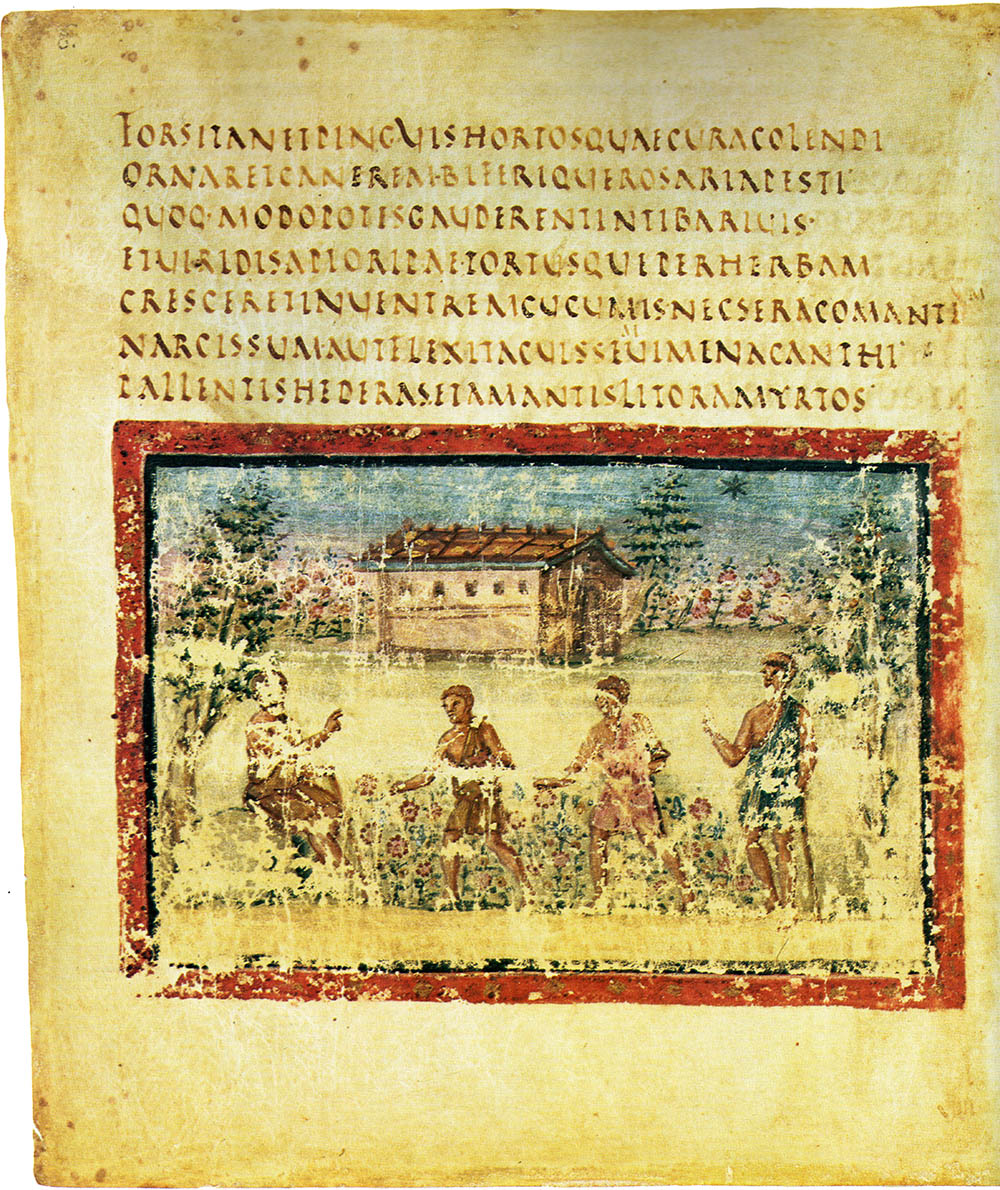 FORSITANETPINGVISHORTOSQVAECVRACOLENDI
ORNARETCANEREM·BIFERIQVEROSARIAPESTI
QVOQ·MODOPOTISGAVDERENTINTIBARIVIS·
ETVIRIDISAPIORIPAETORTVSQVEPERHERBAM
CRESCERETINVENTREMCVCVMISNECSERACOMANTEM
NARCISSVMAVTFLEXITACVISSEMVIMENACANTHI
PALLENTISHEDERASETAMANTISLITORAMYRTOS